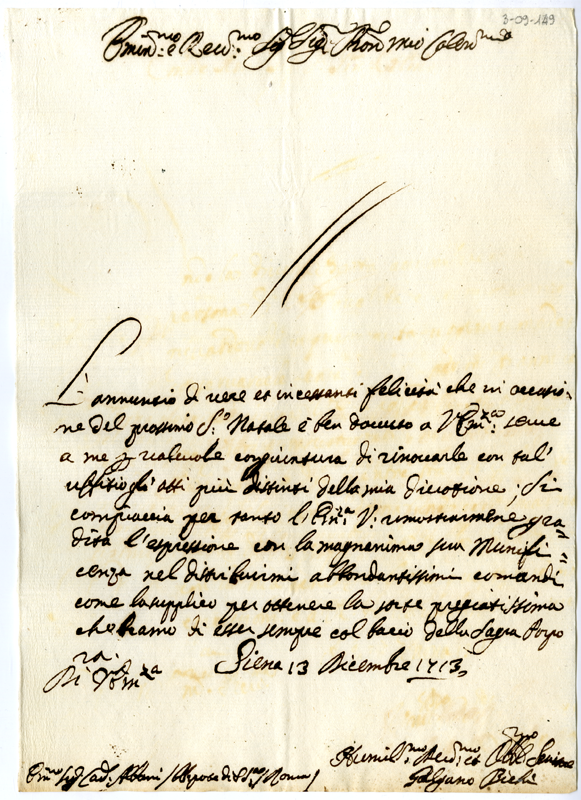 3-09-149
Emin.mo e Rev.mo Sig.r Sig.r Pron mio Colen.mo
L'annunzio di vere et incessanti felicità che in occasio=
ne del prossimo S.to Natale è ben dovuto a V. Em.za serve
a me di valevole congiuntura di rinovarle con tal'
uffitio gl'atti più distinti della mia divozione; Si
compiaccia per tanto l'Em.za V. rimostrarmene gra=
dita l'espressione con la magnanima sua Munifi=
cenza nel distribuirmi abbondantissimi comandi
come la supplico per ottenere la sorte pregiatissima
che bramo di esser sempre col bacio della Sagra Porpo
ra.
Siena 13 Dicembre 1713
Di V. Em.za
Humil.mo Dev.mo et Obl. Servitore
Em.mo Sig.r Card. Albani Nepote di S. S.tà Roma
Galgano Bichi